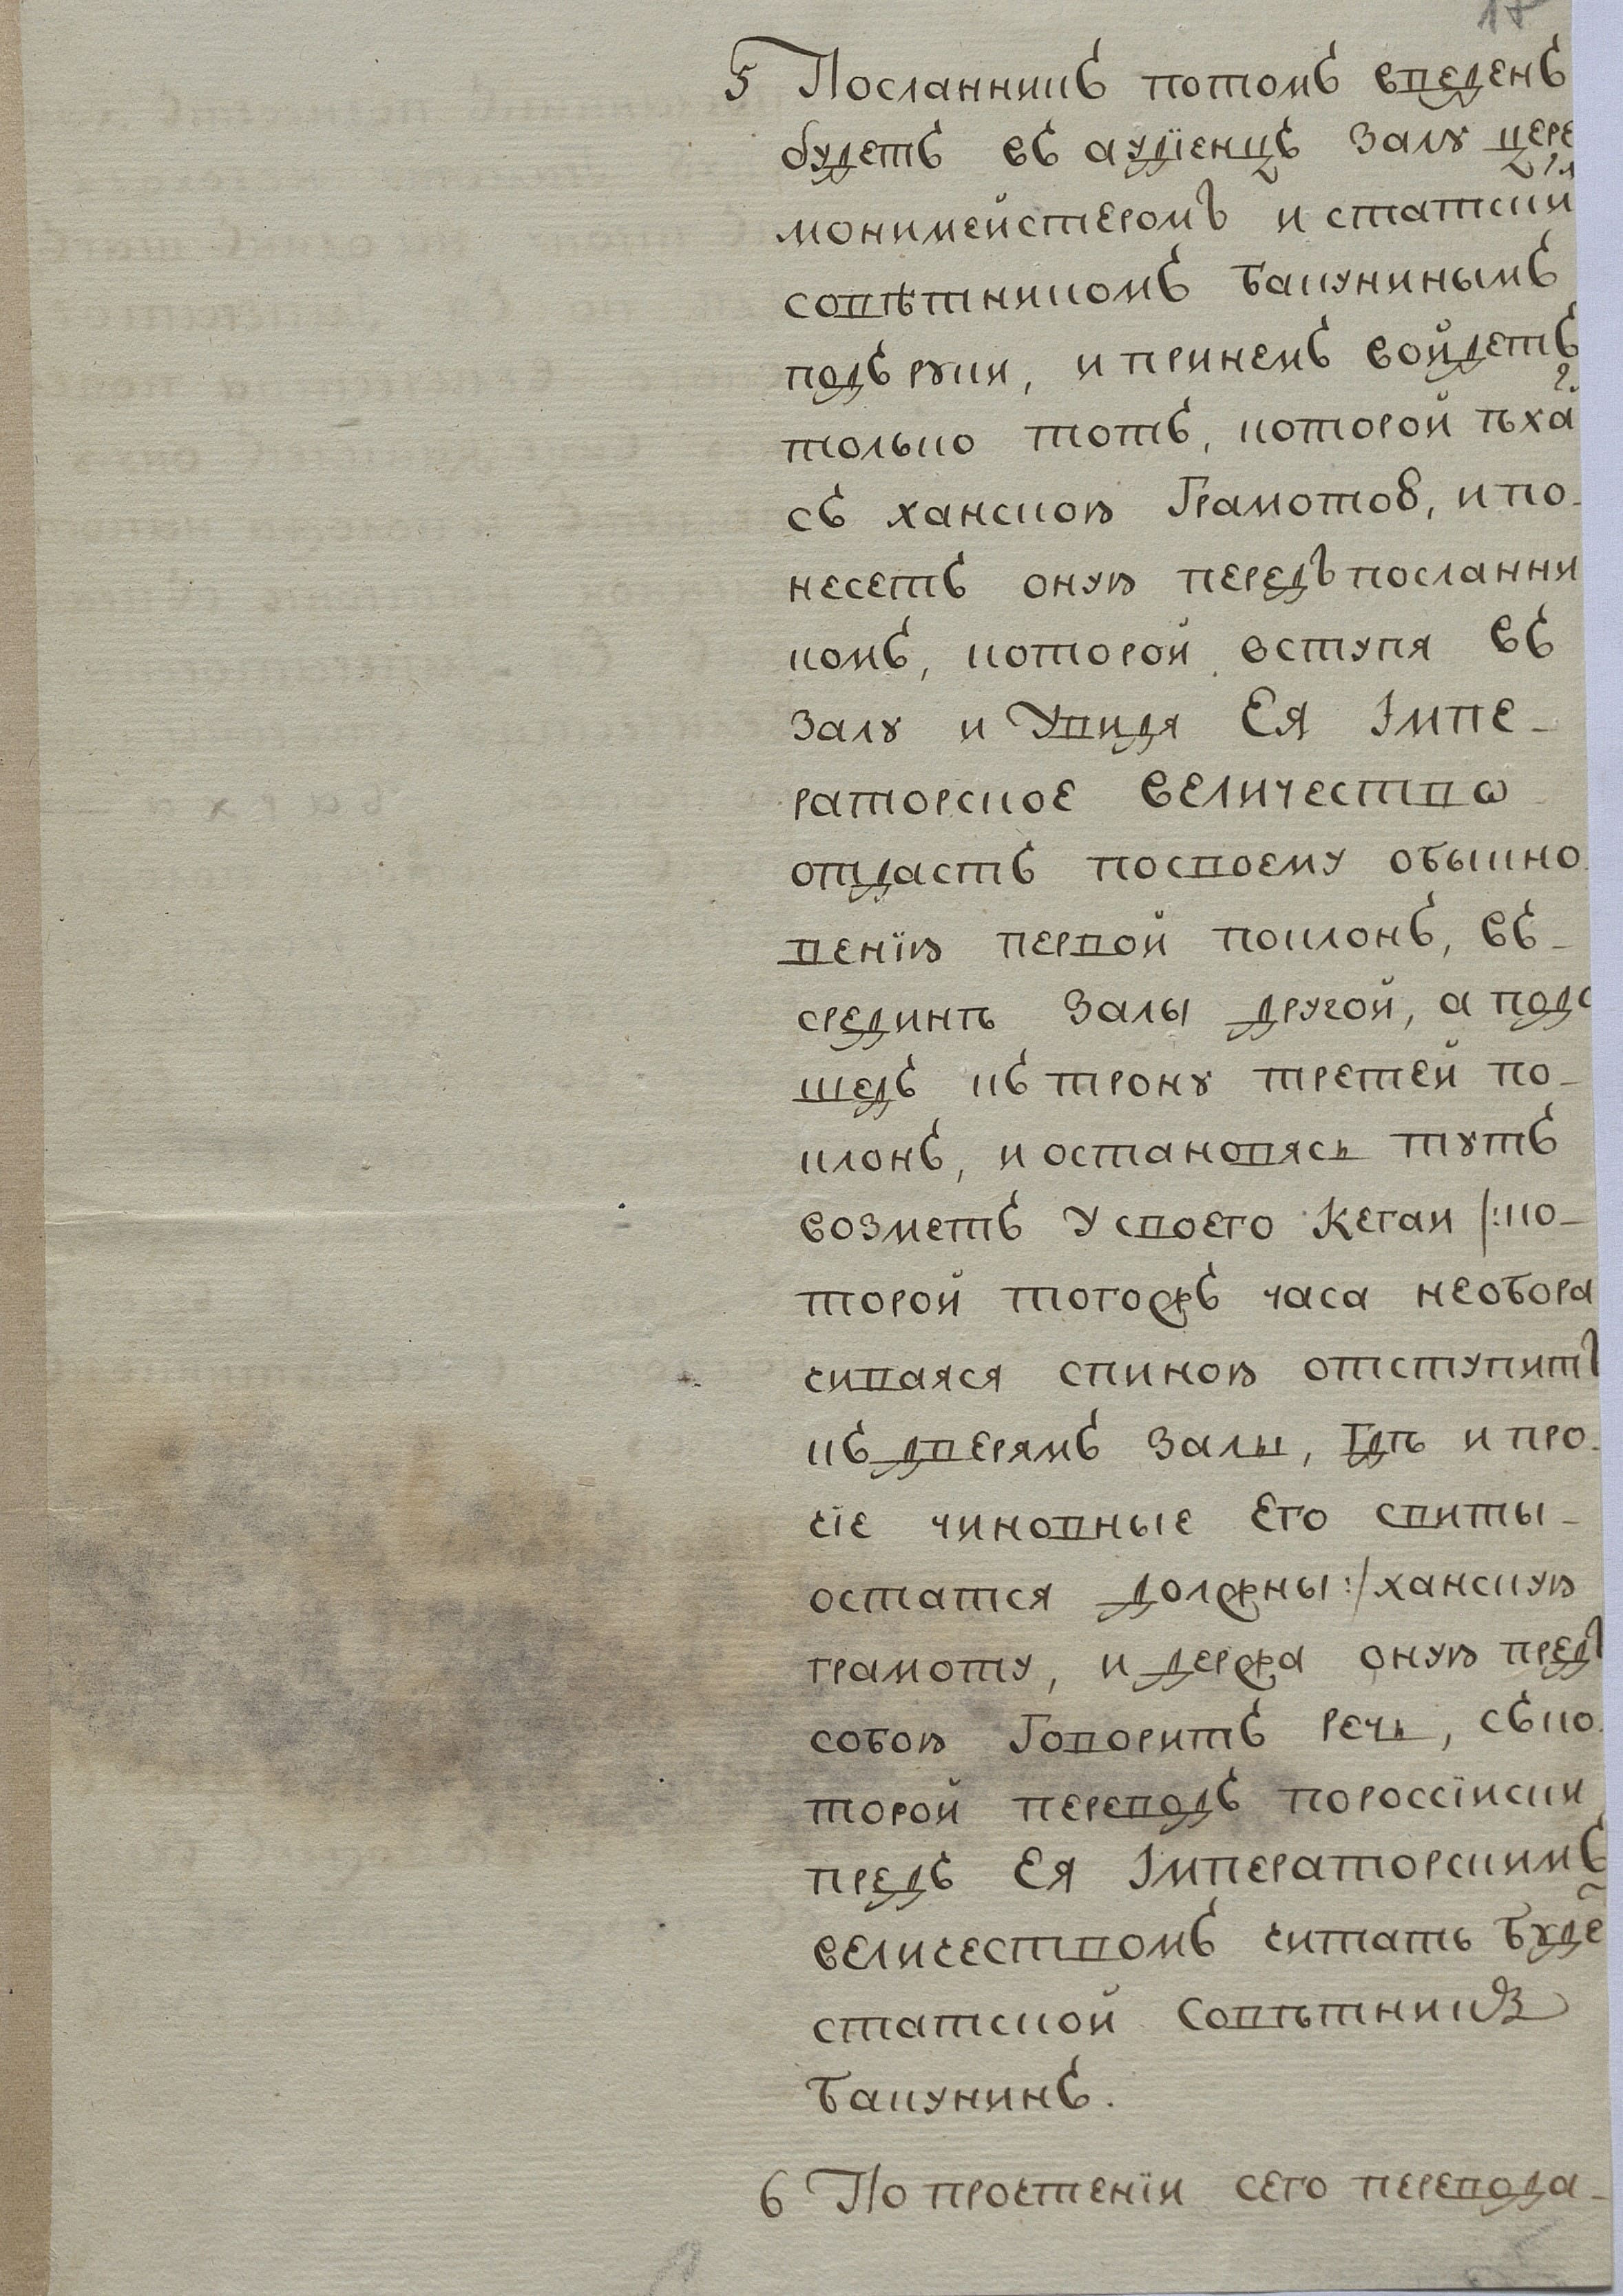 17
5 Посланникъ потомъ введенъ
будетъ въ аудїенцъ залу цере
монимейстеромъ и статски
совѣтникомъ Бакунинымъ
подъ руки, и принемъ войдетъ
только тотъ, которой ѣха
съ ханскою Грамотою, и по-
несетъ оную передъ посланни
комъ, которой вступя въ
залу и Увидя Ея Імпе-
раторское Величество
отдастъ посвоему обыкно-
венїю первой поклонъ, въ-
срединѣ залы другой, а подо
шедъ къ трону третей по-
клонъ, и остановясь тутъ
возметъ У своего Кегаи /:ко-
торой тогожъ часа необора
чиваяся спиною отступитъ
къ дверямъ залы, Гдѣ и про-
чїе чиновные Его свиты-
остатся должны:/ ханскую
грамоту, и держа оную предъ
собою Говоритъ речь, съко-
торой переводъ пороссїиски
предъ Ея Імператорскимъ
величествомъ читать буде
статской Совѣтникъ
Бакунинъ.
6 По прочтенїи сего перевода-